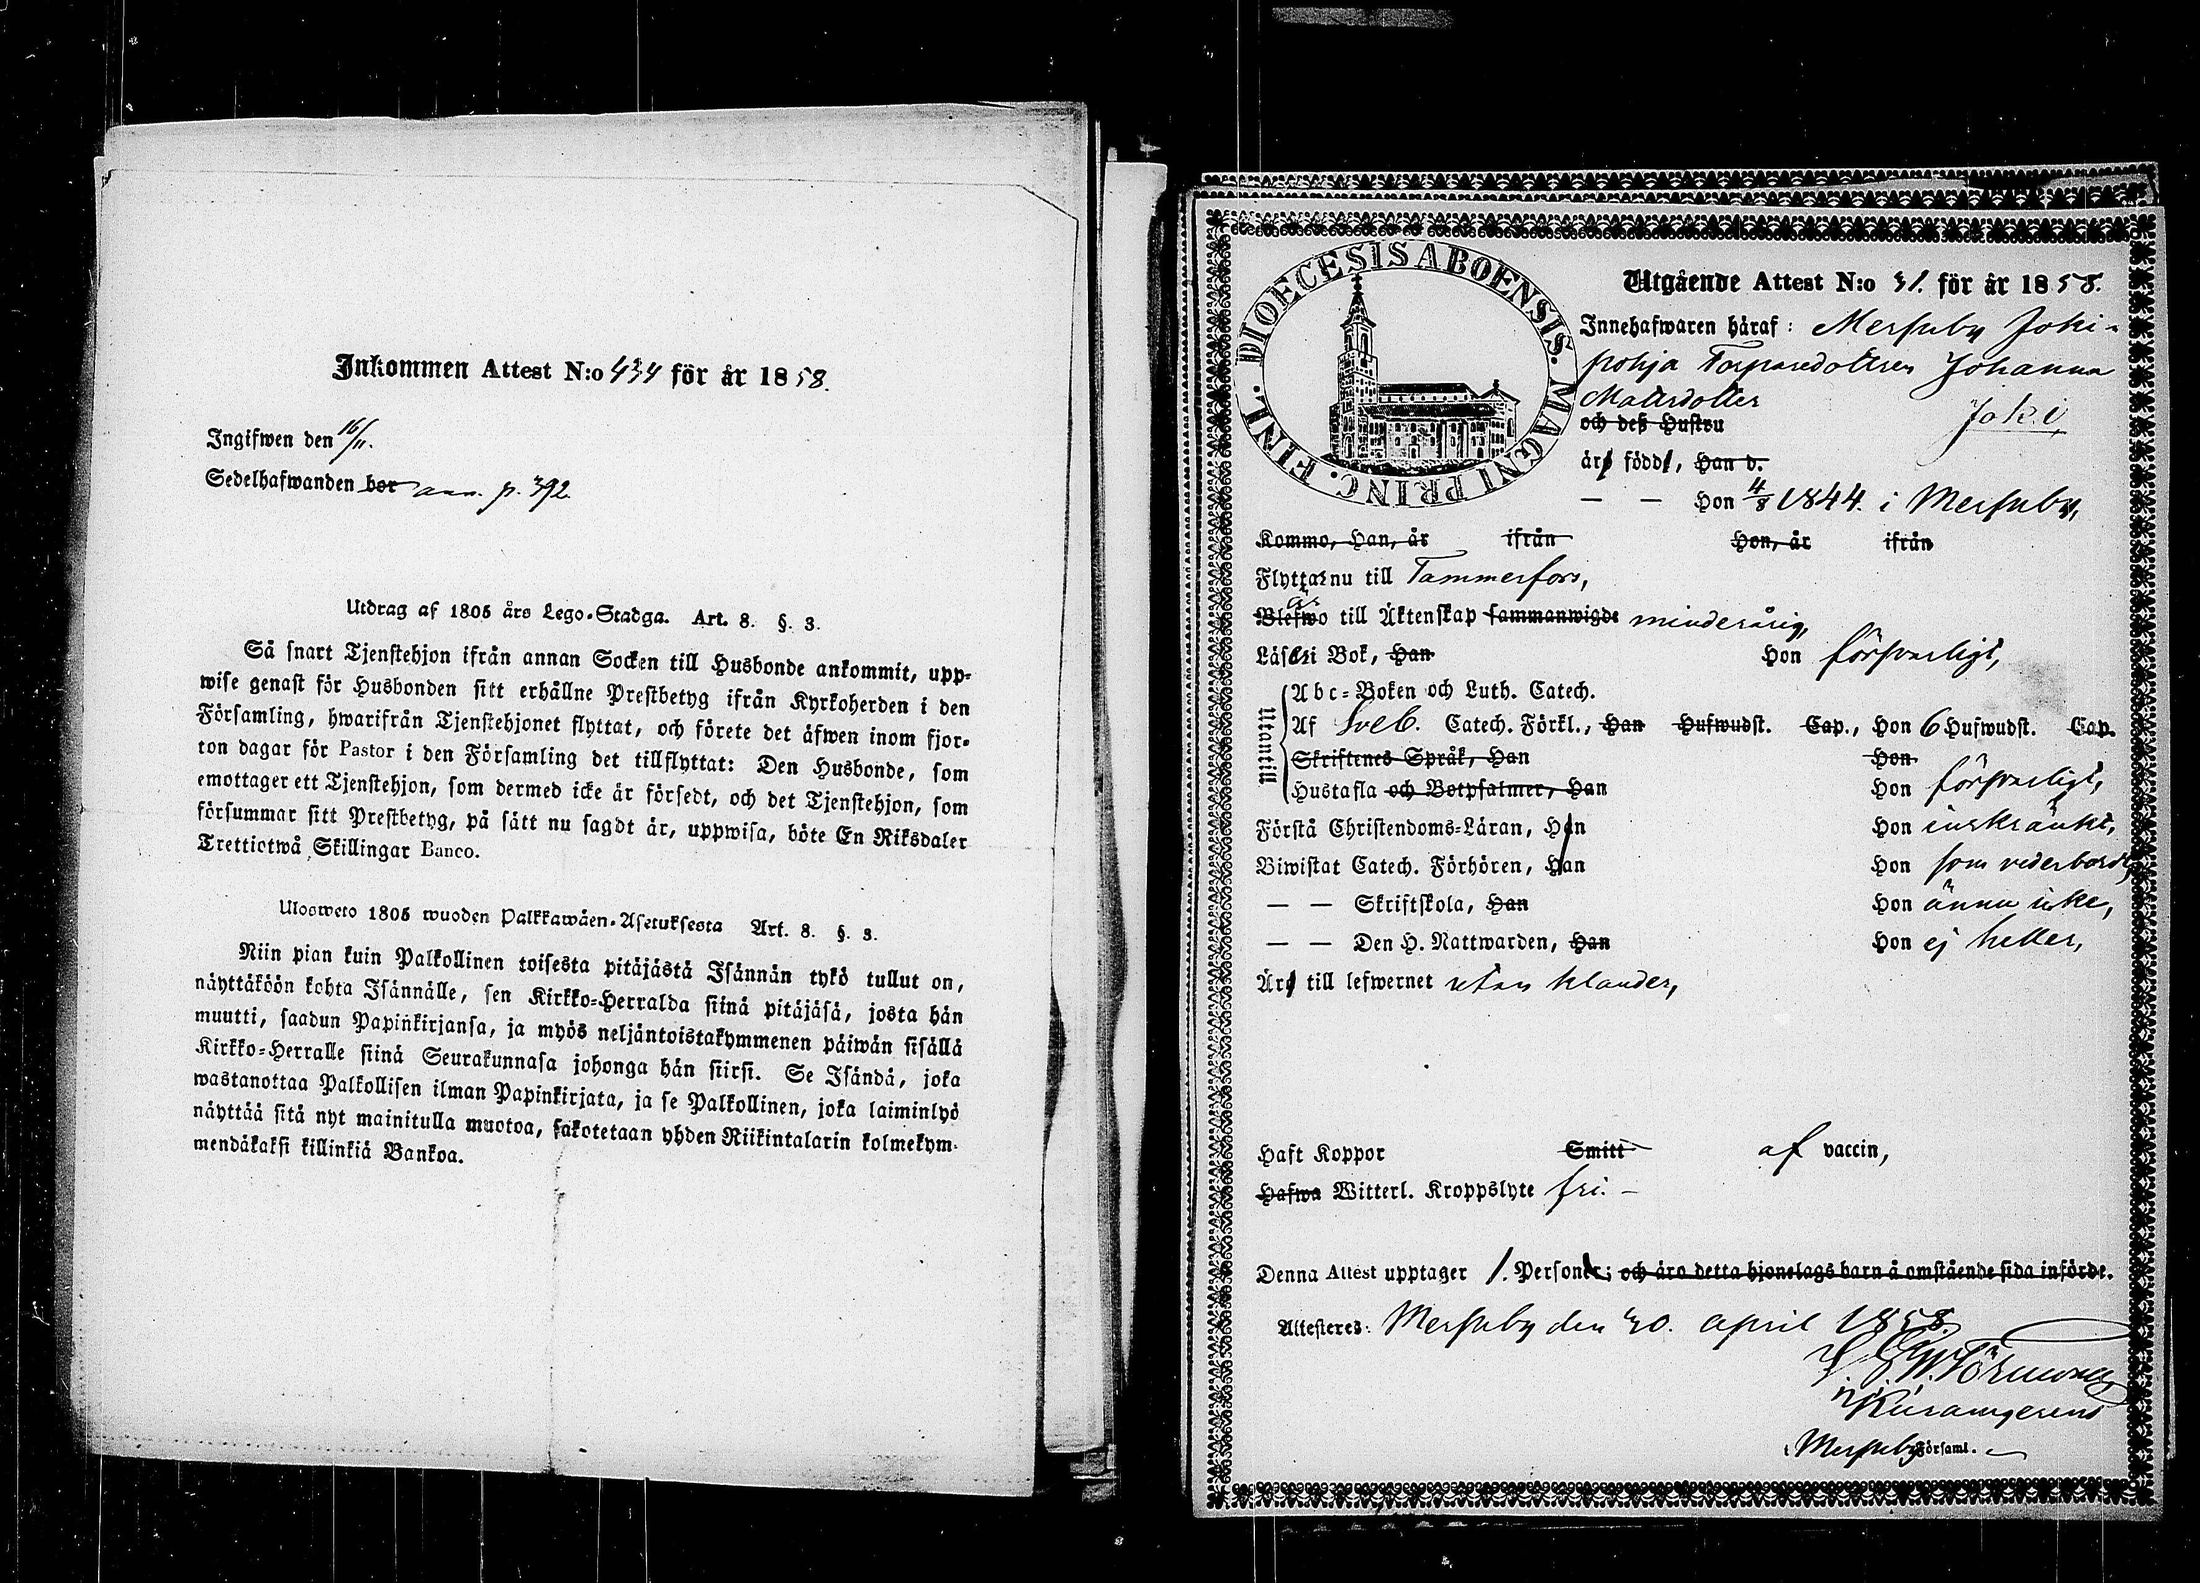 Inkommen Attest N:o 434 för år 1858.
Ingifwen den 16/11.
Sedelhafwanden bor ann. p. 392.
Utdrag af 1805 års Lego-Stadga. Art. 8. §. 3.
Så snart Tjenstehjon ifrån annan Socken till Husbonde ankommit, upp-
wise genast för Husbonden sitt erhållne Prestbetyg ifrån Kyrkoherden i den
Församling, hwarifrån Tjenstehjonet flyttat, och förete det äfwen inom fjor-
ton dagar för Pastor i den Församling det tillflyttat: Den Husbonde, som
emottager ett Tjenstehjon, som dermed icke är försedt, och det Tjenstehjon, som
försummar sitt Prestbetyg, på sätt nu sagdt är, uppwisa, böte En Riksdaler
Trettiotwå Skillingar Banco.
Ulosweto 1805 wuoden Palkkawäen-Asetuksesta Art. 8. §. 3.
Niin pian kuin Palkollinen toisesta pitäjästä Isännän tykö tullut on,
näyttäköön kohta Isännälle, sen Kirkko-Herralda siinä pitäjäsä, josta hän
muutti, saadun Papinkirjansa, ja myös neljäntoistakymmenen päiwän sisällä
Kirkko-Herralle siinä Seurakunnasa johonga hän siirsi. Se Isändä, joka
wastanottaa Palkollisen ilman Papinkirjata, ja se Palkollinen, joka laiminlyö
näyttää sitä nyt mainitulla muotoa, sakotetaan yhden Riikintalarin kolmekym-
mendäkaksi killinkiä Bankoa.
DIOECESIS ABOENSIS. MAGNI PRINC. FINL.
Utgående Attest N:o 31. för år 1858.
Innehafwaren häraf: Merfuby Joki-
pohja Torparedottren Johanna
Matsdotter
Joki
och deß Hustru
äro född, Han d.
— — Hon 4/8 1844. i Merfuby,
Kommo, Han, år ifrån Hon, år ifrån
Flyttar nu till Tammerfors,
Blefwo är till Äktenskap sammanwigde minderårig,
Läser i Bok, Han Hon försvarligt,
Utantill
Abc-Boken och Luth. Catech.
Af Sveb. Catech. Förkl., Han Hufwudst. Cap., Hon 6 Hufwudst. Cap.
Skriftenes Språk, Han Hon
Hustafla och Botpsalmer, Han Hon försvarligt,
Förstå Christendoms-Läran, Han Hon inskränkt,
Biwistat Catech. Förhören, Han Hon som vederbordt,
— — Skriftskola, Han Hon ännu icke,
— — Den H. Nattwarden, Han Hon ej heller,
Äro till lefwernet utan klander,
Haft Koppor Smitt af vaccin,
Hafwa Witterl. Kroppslyte fri. —
Denna Attest upptager 1. Personer; och äro detta hjonelags barn å omstående sida införde.
Attesteres: Merfuby den 30. april 1858.
i Merfuby Församl.